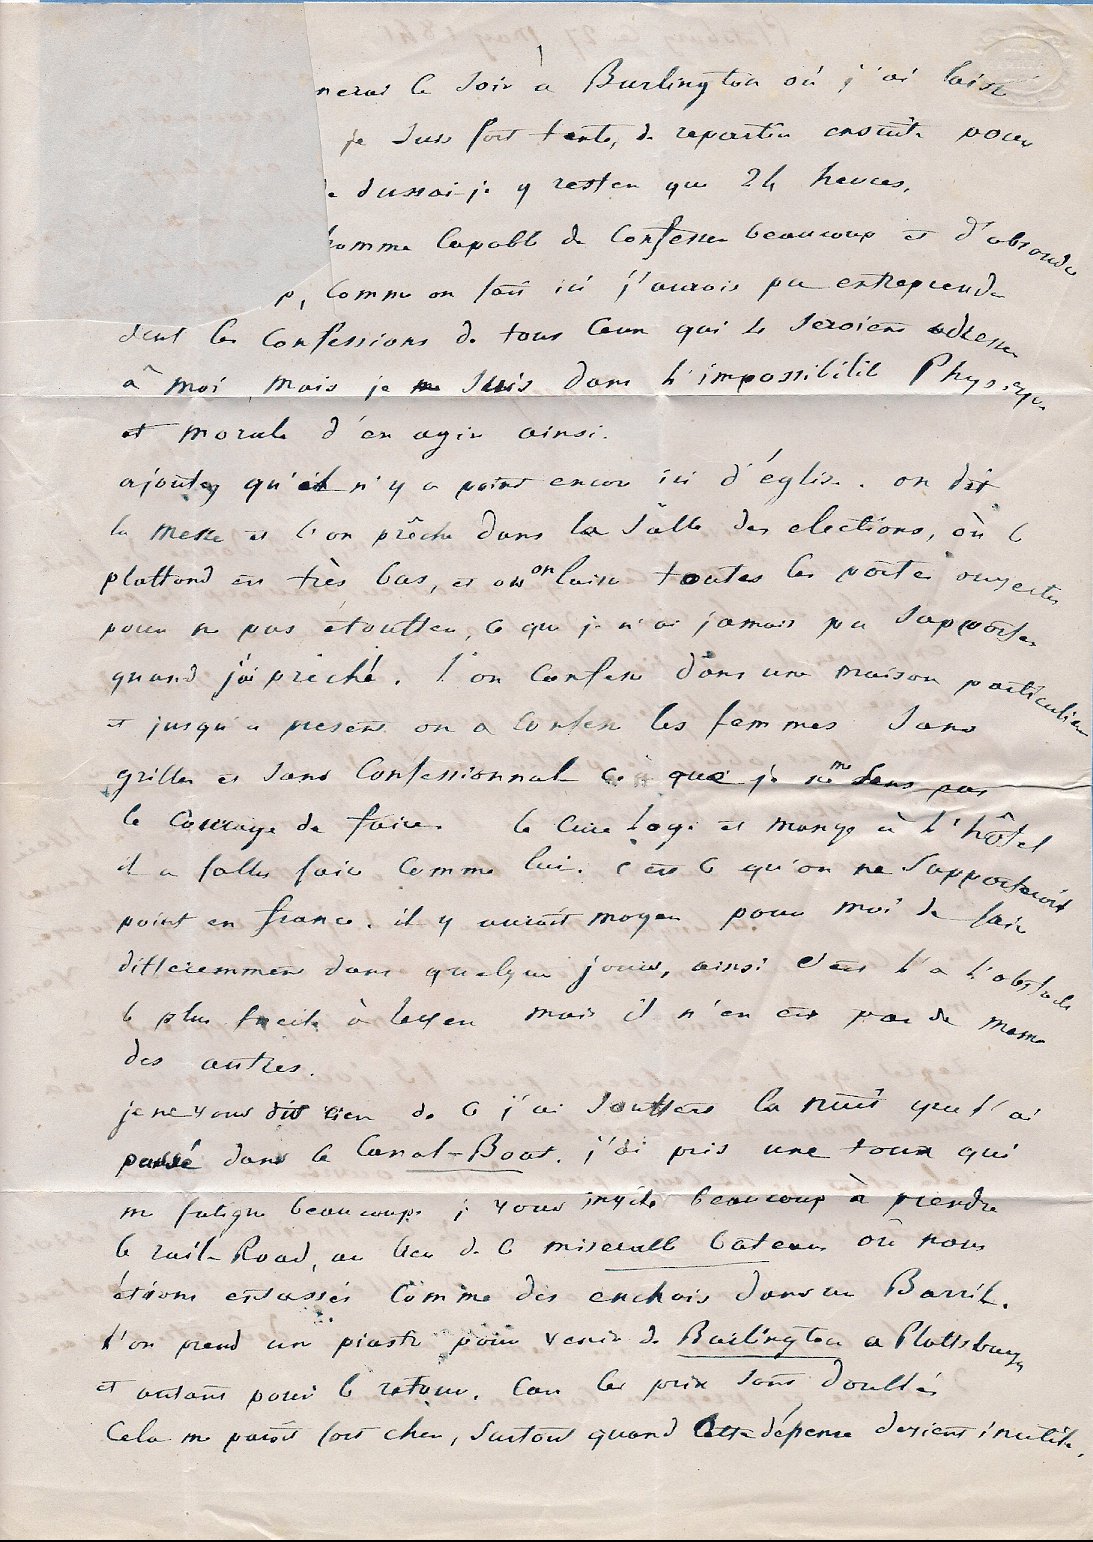 nerai le soir a Burlington où j'ai laissé
je suis fort tenté, de repartir ensuite pour
dussai-je y rester que 24 heures.
homme capable de confesser beaucoup et d'absoudre
p, comme on fait ici j'aurois pu entreprendre
les confessions de tous ceux qui se seroient adressés
à moi, mais je me suis dans l'impossibilité Physique
et morale d'en agir ainsi.
ajoutez qu'il n'y a point encore ici d'église. on dit
la messe et l'on prêche dans la salle des elections, où le
plaffond est très bas, et on laisse toutes les portes ouvertes
pour ne pas étouffer, ce que je n'ai jamais pu supporter
quand j'ai prêché. l'on confesse dans une maison particuliere
et jusqu'a present on a confessé les femmes sans
grilles et sans confessionnal ce que je ne me sens pas
le courage de faire. le curé loge et mange à l'hôtel
il a fallu faire comme lui. c'est ce qu'on ne supporteroit
point en france. il y auroit moyen pour moi de faire
differemment dans quelques jours, ainsi c'est là l'obstacle
le plus facile à lever mais il n'en est pas de meme
des autres.
je ne vous dis rien de ce j'ai souffert la nuit que j'ai
passé dans le Canal-Boat. j'ai pris une toux qui
me fatigue beaucoup. je vous invite beaucoup à prendre
le rail-Road, au lieu de ce miserable bateau où nous
étions entassés comme des enchois dans un Barril.
l'on prend un piastre pour venir de Burlington a Plattsburgh
et autant pour le retour. car les prix sont doublés
cela me paroit fort cher, surtout quand cette dépense devient inutile.